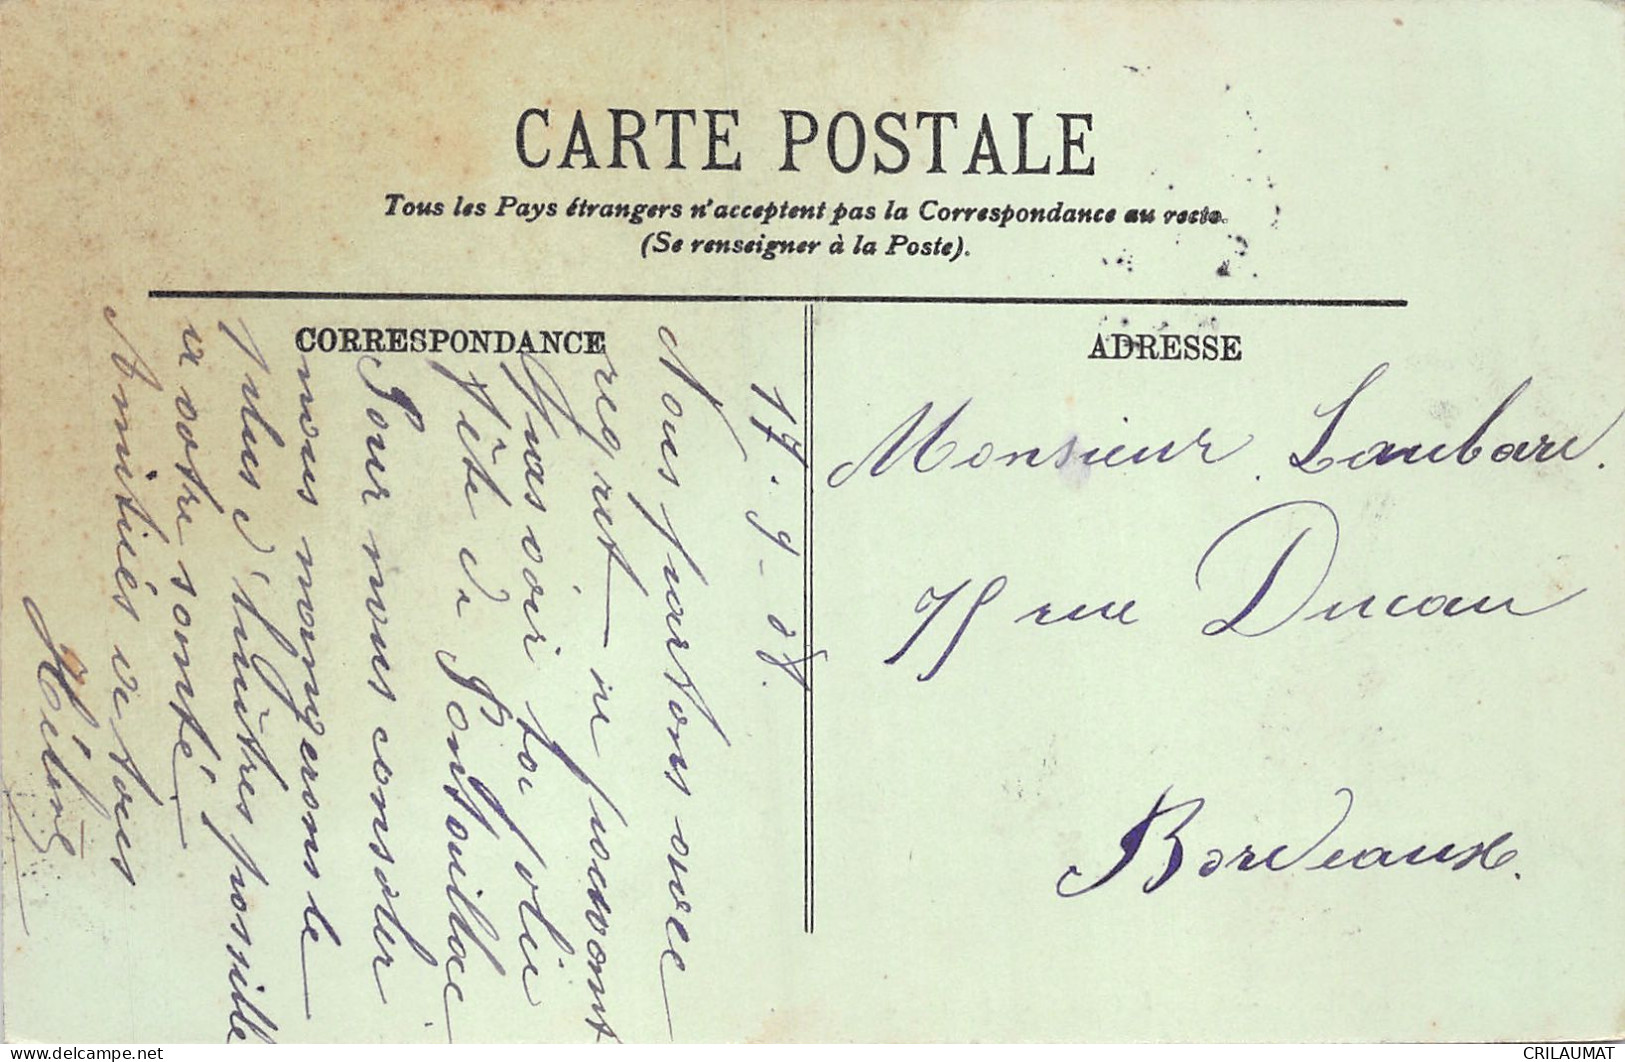 CARTE POSTALE
Tous les Pays étrangers n'acceptent pas la Correspondance au recto.
(Se renseigner à la Poste).
CORRESPONDANCE
17-9-08.
Nous partons avec
regret ne pouvant
pas voir la jolie
fête de Pontaillac
Pour nous consoler
nous mangerons le
plus d'huîtres possible
à votre santé.
Amitiés à tous
Hélène
ADRESSE
Monsieur Laubare.
75 rue Ducau
Bordeaux.
delcampe.net
CRILAUMAT